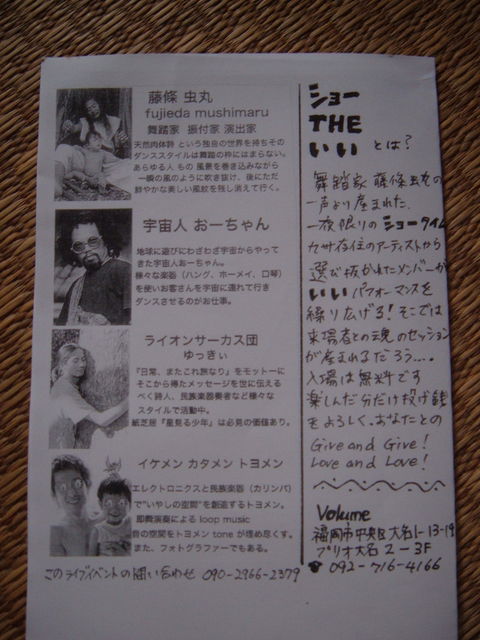 藤條 虫丸
fujieda mushimaru
舞踏家 振付家 演出家
天然肉体詩 という独自の世界を持ちその
ダンススタイルは舞踏の枠にはまらない。
あらゆる人 もの 風景を巻き込みながら
一瞬の風のように吹き抜け、後にただ
鮮やかな美しい風紋を残し消えて行く。
宇宙人 おーちゃん
地球に遊びにわざわざ宇宙からやって
きた宇宙人おーちゃん。
様々な楽器（ハング、ホーメイ、口琴）
を使いお客さんを宇宙に連れて行き
ダンスさせるのがお仕事。
ライオンサーカス団
ゆっきぃ
『日常、またこれ旅なり』をモットーに
そこから得たメッセージを世に伝える
べく詩人、民族楽器奏者など様々な
スタイルで活動中。
紙芝居『星見る少年』は必見の価値あり。
イケメン カタメン トヨメン
エレクトロニクスと民族楽器（カリンバ）
で"いやしの空間"を創造するトヨメン。
即興演奏による loop music
音の空間をトヨメン tone が埋め尽くす。
また、フォトグラファーでもある。
このライブイベントの問い合わせ 090-2966-2379
ショー
THE
いい とは?
舞踏家 藤條虫丸の
一声より産まれた
一夜限りのショータイム
九州在住のアーティストから
選び抜かれたメンバーが
いいパフォーマンスを
繰り広げる! そこでは
来場者との魂のセッション
が産まれるだろう....
入場は無料です
楽しんだ分だけ投げ銭
をよろしく、あなたとの
Give and Give!
Love and Love!
Volume
福岡市中央区大名1-13-19
プリオ大名2-3F
☎ 092-716-4166